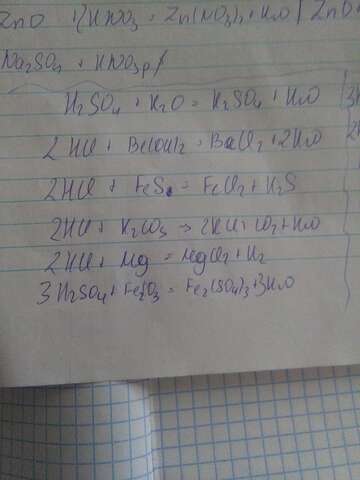 ZnO + 2HNO3 = Zn(NO3)2 + H2O | ZnO
Na2SO3 + HNO3 р/
H2SO4 + K2O = K2SO4 + H2O
2HCl + Ba(OH)2 = BaCl2 + 2H2O
2HCl + FeS = FeCl2 + H2S
2HCl + K2CO3 → 2KCl + CO2 + H2O
2HCl + Mg = MgCl2 + H2
3H2SO4 + Fe2O3 = Fe2(SO4)3 + 3H2O